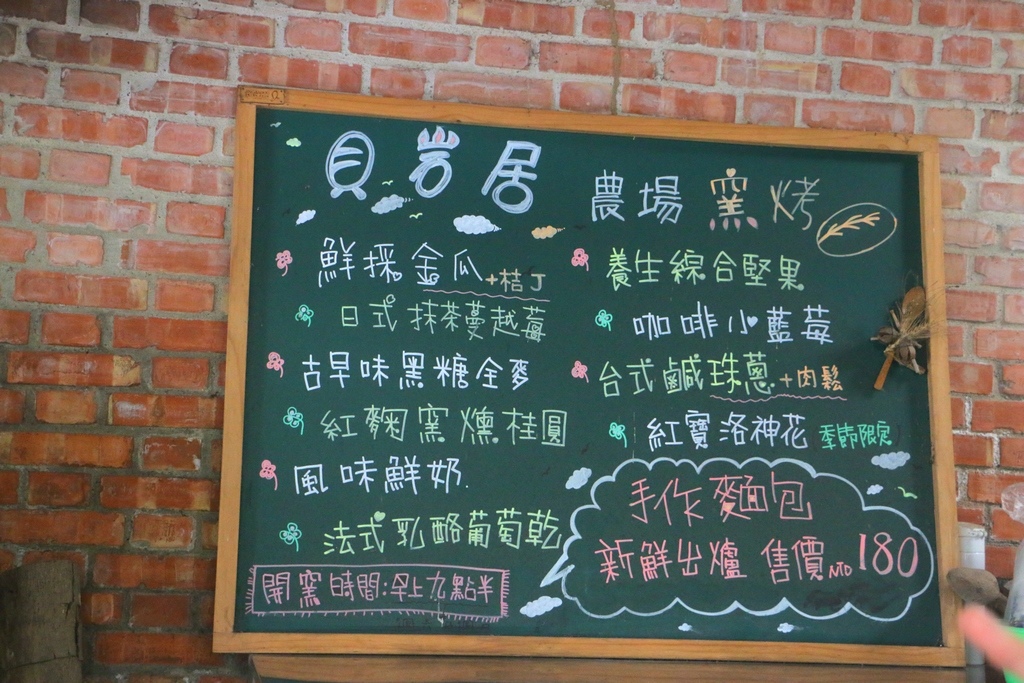 貝岩居 農場 窯烤
鮮採金瓜+桔丁
日式抹茶蔓越莓
古早味黑糖全麥
紅麴窯燻桂圓
風味鮮奶
法式乳酪葡萄乾
開窯時間:早上九點半
養生綜合堅果
咖啡小藍莓
台式鹹珠蔥+肉鬆
紅寶洛神花 季節限定
手作麵包
新鮮出爐 售價NTD180